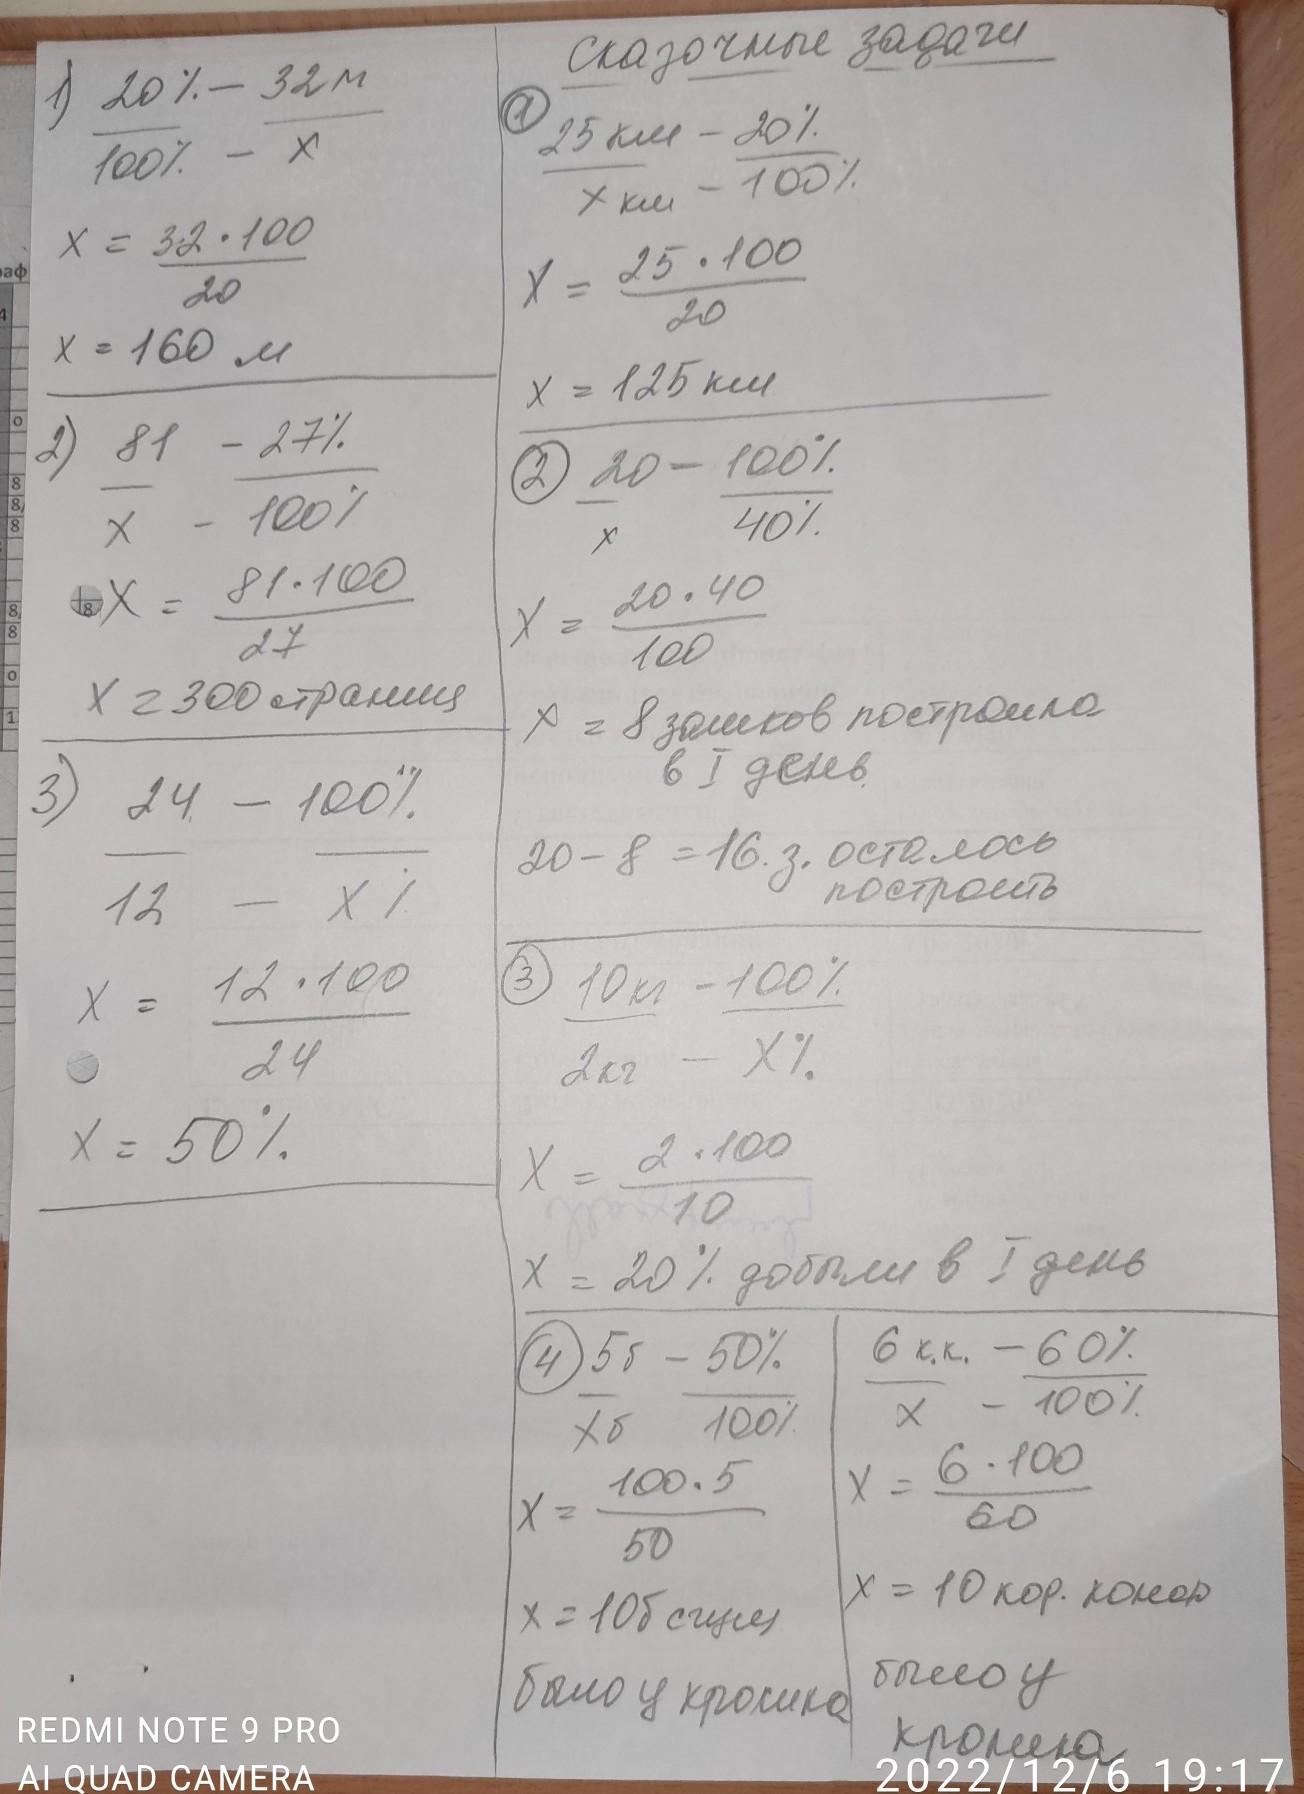 1) 20% – 32 м
100% – x
x = 32·100
20
x = 160 м
2) 81 – 27%
x – 100%
x = 81·100
27
x = 300 страниц
3) 24 – 100%
12 – x%
x = 12·100
24
x = 50%.
Сказочные задачи
1 25 км – 20%
x км – 100%
x = 25·100
20
x = 125 км
2 20 – 100%
x 40%.
x = 20·40
100
x = 8 замков построила
в I день
20 – 8 = 16 з. осталось
построить
3 10 кг – 100%
2 кг – x%.
x = 2·100
10
x = 20% добыли в I день
4 5б – 50%
xб 100%
x = 100·5
50
x = 10б сгущ
было у кролика
6 к.к. – 60%
x – 100%
x = 6·100
60
x = 10 кор. конф
было у
кролика
REDMI NOTE 9 PRO
AI QUAD CAMERA
2022/12/6 19:17